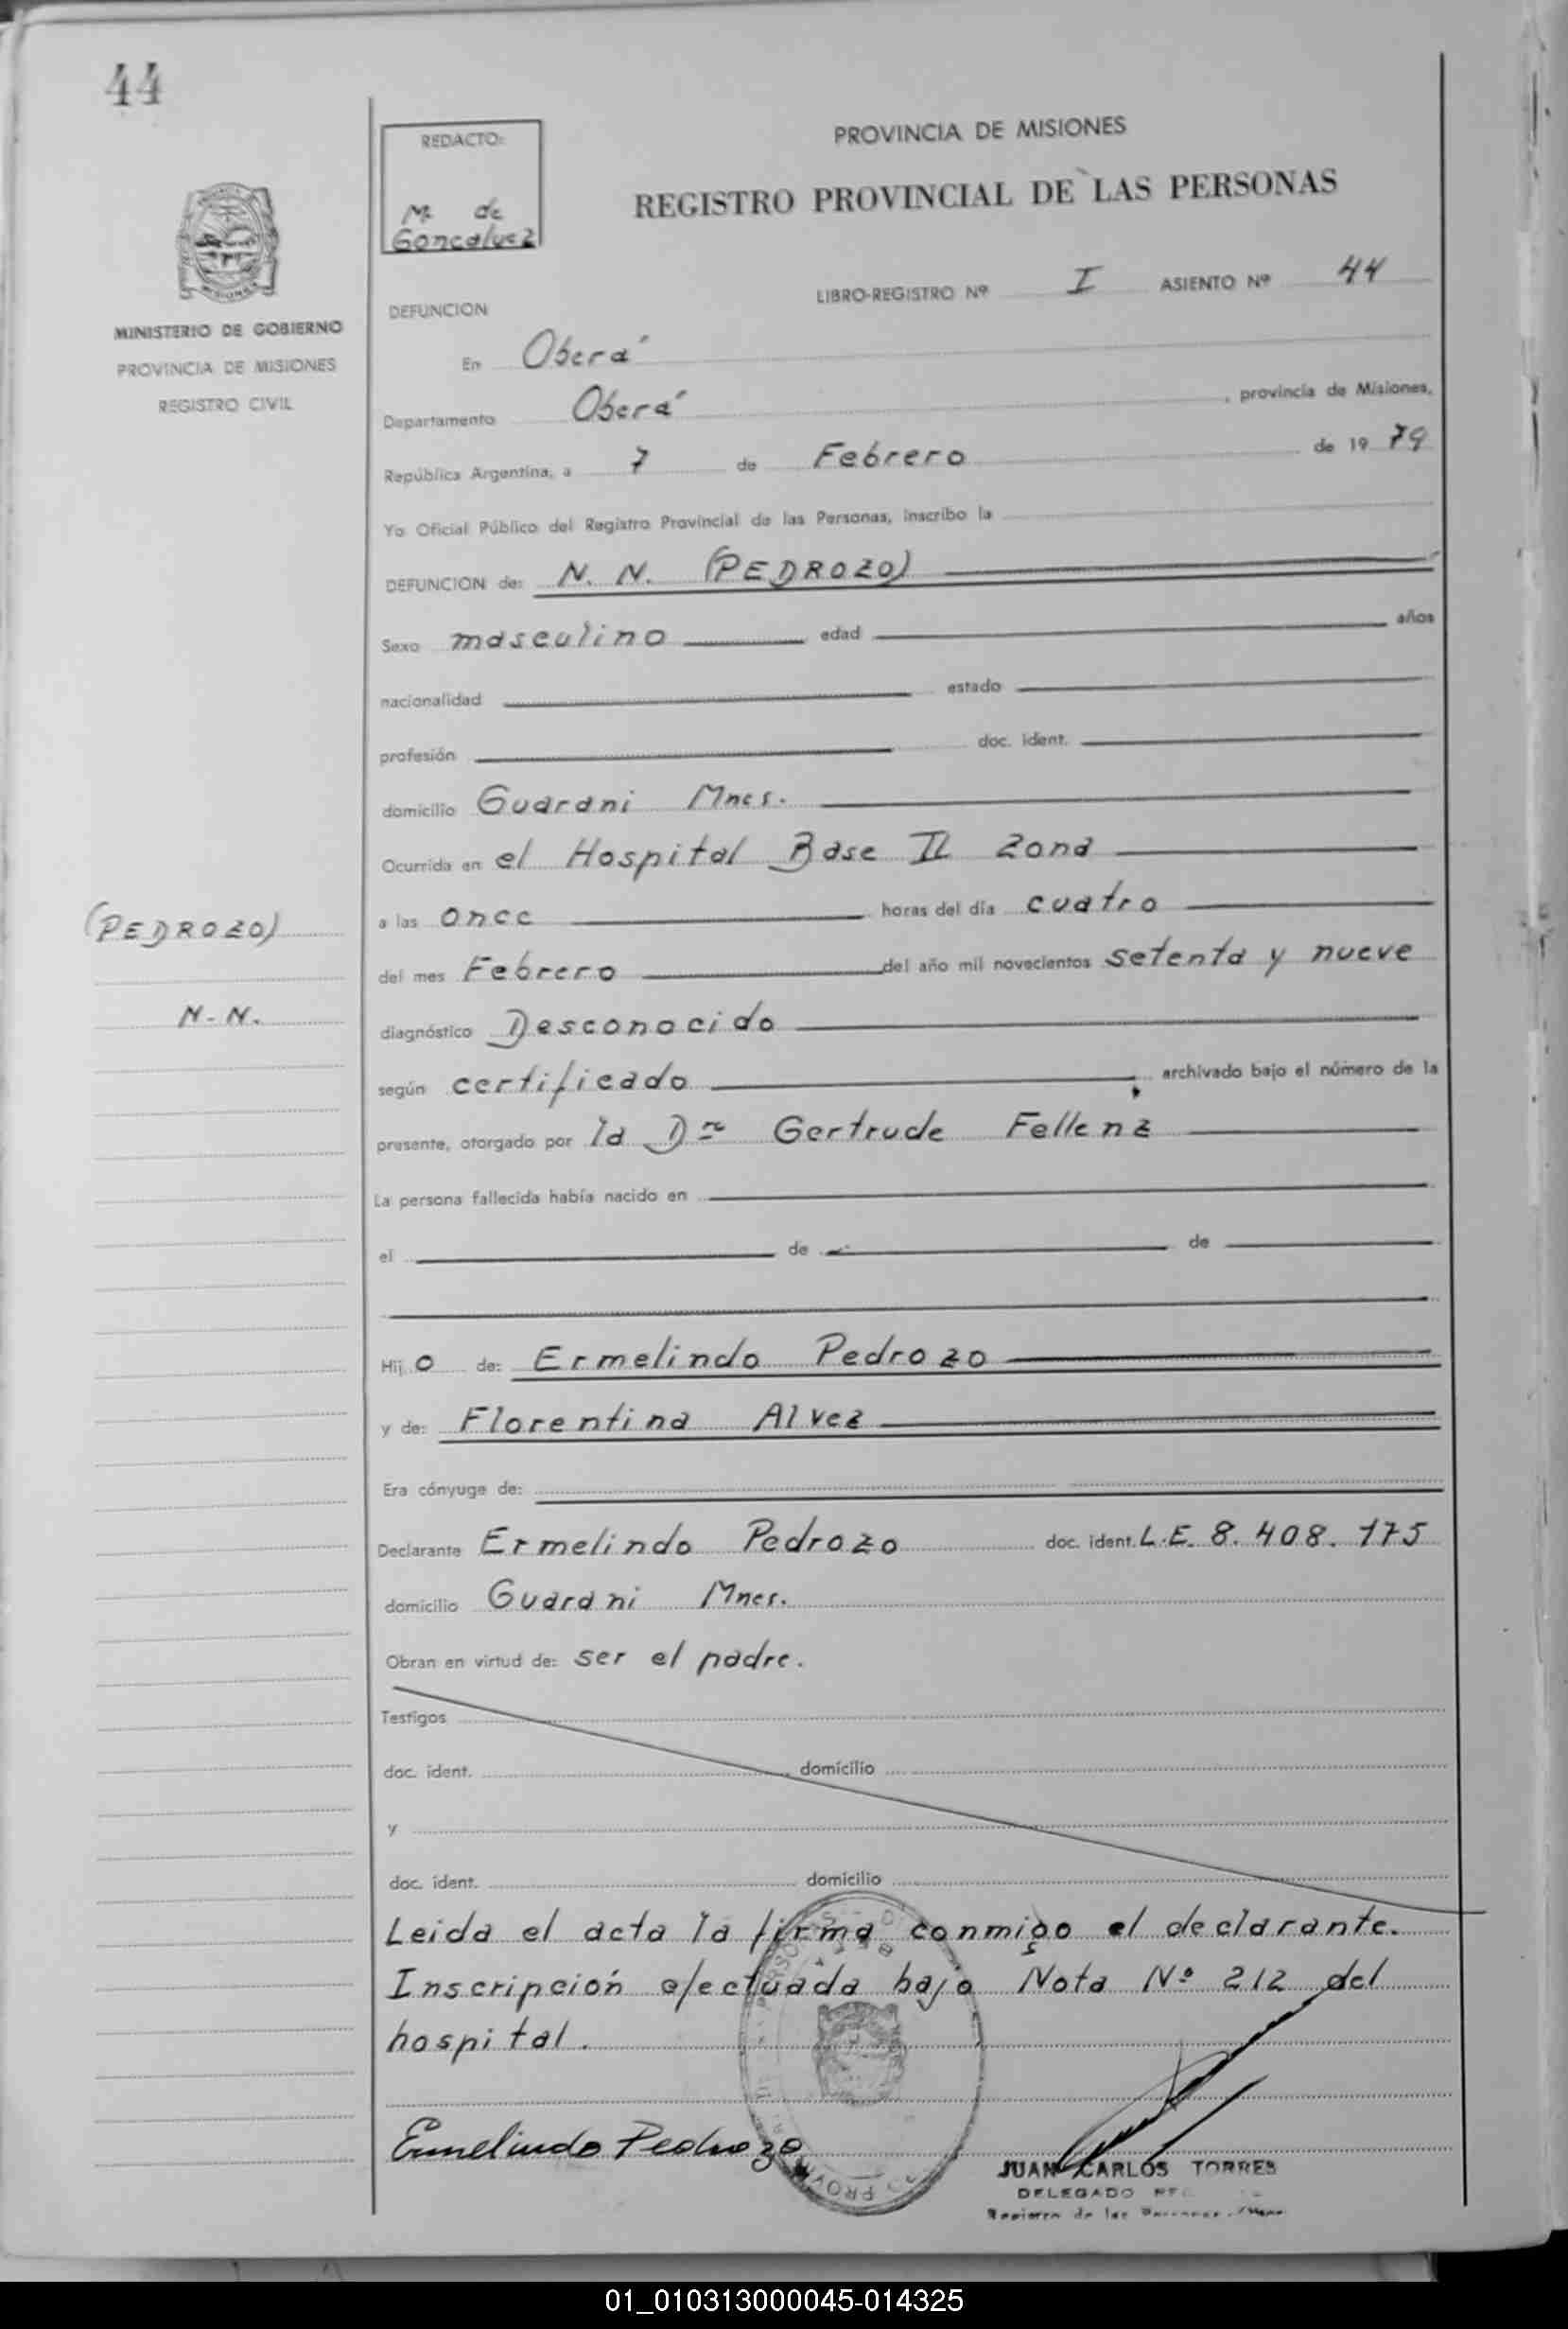 44
REDACTO:
M. de
Goncalvez
PROVINCIA DE MISIONES
REGISTRO PROVINCIAL DE LAS PERSONAS
MINISTERIO DE GOBIERNO
PROVINCIA DE MISIONES
REGISTRO CIVIL
LIBRO-REGISTRO Nº I ASIENTO Nº 44
DEFUNCION
En Oberá
Departamento Oberá, provincia de Misiones,
República Argentina, a 7 de Febrero de 1979
Yo Oficial Público del Registro Provincial de las Personas, inscribo la
DEFUNCION de: N. N. (PEDROZO)
Sexo masculino edad años
nacionalidad estado
profesión doc. ident.
domicilio Guarani Mnes.
Ocurrida en el Hospital Base II Zona
a las once horas del día cuatro
(PEDROZO)
del mes Febrero del año mil novecientos setenta y nueve
N-N.
diagnóstico Desconocido
según certificado, archivado bajo el número de la
presente, otorgado por la Dra Gertrude Fellenz
La persona fallecida había nacido en
el de de
Hijo de: Ermelindo Pedrozo
y de: Florentina Alvez
Era cónyuge de:
Declarante Ermelindo Pedrozo doc. ident. L.E. 8.408.175
domicilio Guarani Mnes.
Obran en virtud de: ser el padre.
Testigos
doc. ident. domicilio
y
doc. ident. domicilio
Leida el acta la firma conmigo el declarante.
Inscripción efectuada bajo Nota Nº 212 del
hospital.
Ermelindo Pedrozo
JUAN CARLOS TORRES
DELEGADO
Registro de las Personas
01_010313000045-014325